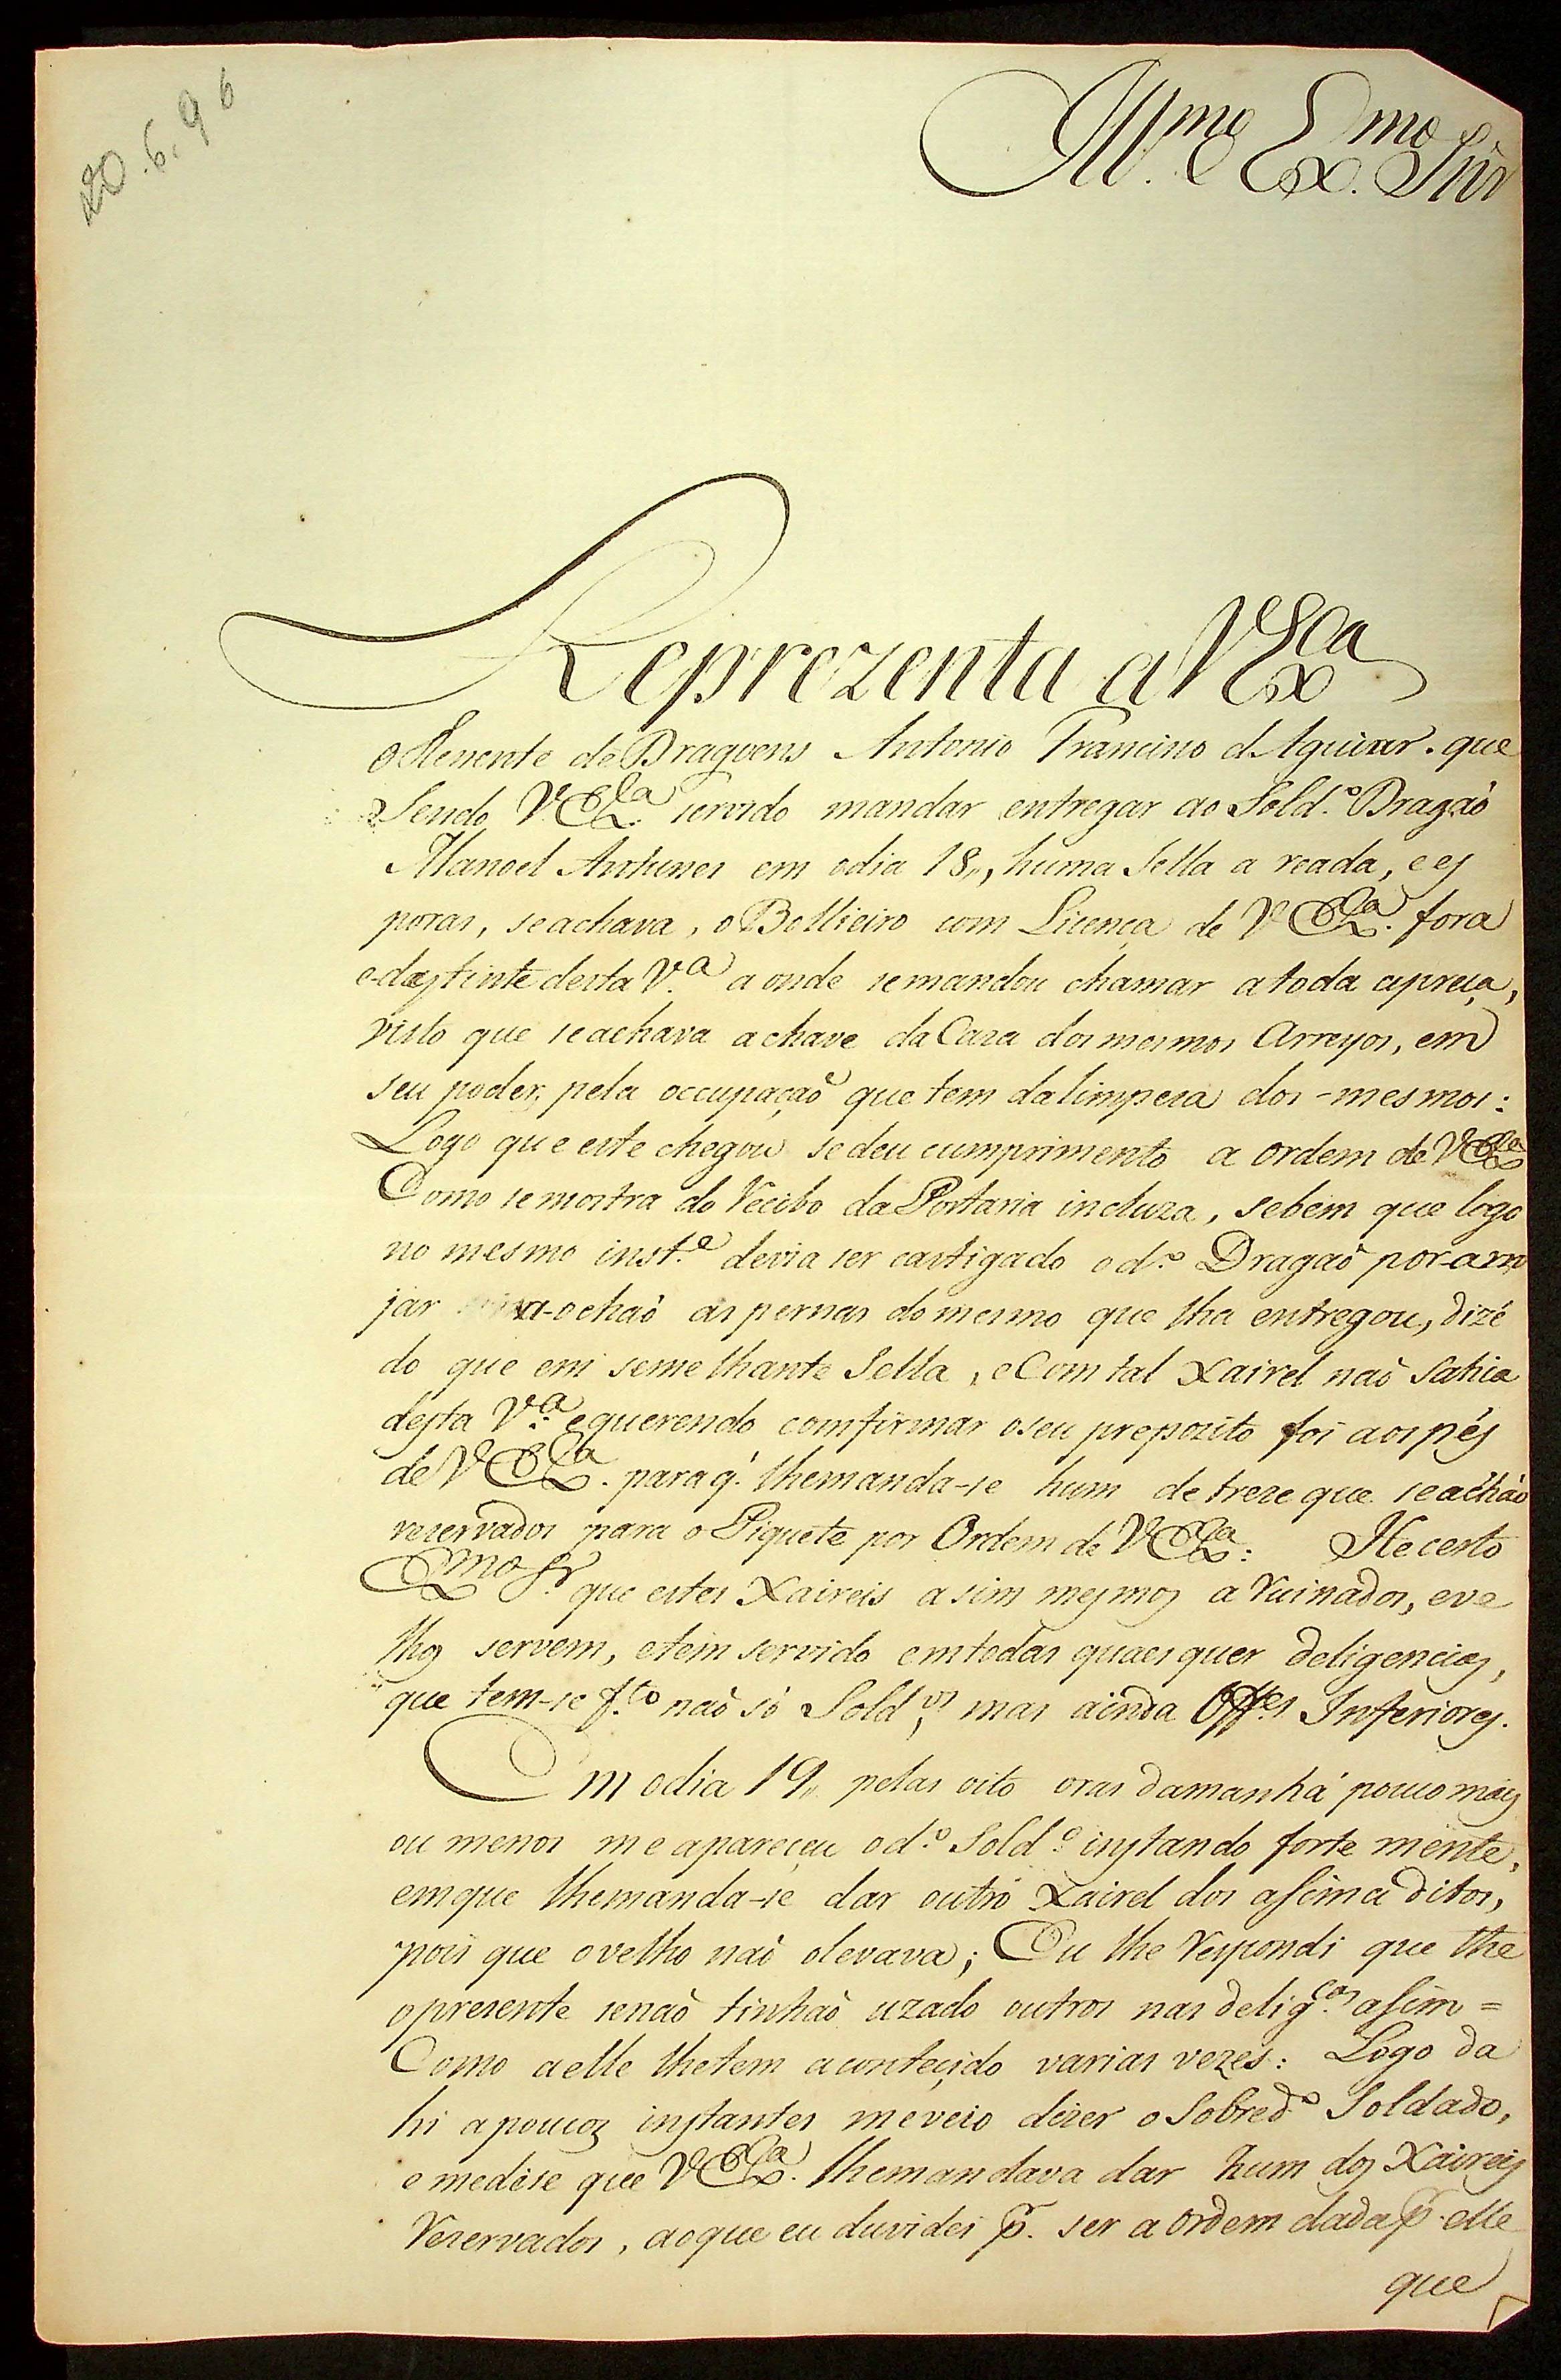 20.6.96
Ill.mo e Ex.mo Snr
Reprezenta a V Ex.ca
o Tenente de Dragoens Antonio Francino d Aguiar. que
Sendo V Ex.ca servido mandar entregar ao Sold.o Dragaõ
Manoel Antunes em odia 18,, huma Sella a reada, e es
poras, seachava, o Bollieiro com Licença de V Ex.ca fora
e destinte desta V.a a onde semandou chamar atoda apreça,
visto que seachava achave da Caza dosmesmos Arreyos, em
seu poder, pela occupaçaõ que tem dalimpeza dos mesmos:
Logo que este chegou sedeu cumprimento a ordem de V Ex.ca
Como semostra do Recibo da Portaria incluza, sebem que logo
no mesmo inst.e devia ser castigado o d.o Dragaõ por arro
jar ochaõ as pernas domesmo que lha entregou, dizẽ
do que em semelhante Sella, e Com tal Xairel naõ Sahia
desta V.a e querendo comfirmar oseu propozito foi aos pés
de V Ex.ca para q. lhemanda-se hum de treze que seachaõ
rezervados para o Piquete por Ordem de V Ex.ca: He certo
Ex.mo Sr. que estes Xaireis asim mesmos a Ruinados, eve
lhos servem, etem servido emtodas quaesquer deligencias,
que tem-se f.to naõ só Sold.os, mas ainda Off.es Inferiores.
Em odia 19,, pelas oito oras damanhá pouco mais
ou menos me apareçeu o d.o Sold.o instando forte mente,
emque lhemanda-se dar outro Xairel dos assima ditos,
pois que ovelho naõ olevava; Eu lhe Respondi que the
opresente senaõ tinhaõ uzado outros nas delig.cas assim =
Como aelle lhetem aconteçido varias vezes: Logo da
hi apoucos instantes meveio dizer o Sobred.o Soldado,
e medise que V Ex.ca lhemandava dar hum dos Xaireis
Rezervados, aoque eu duvidei p.r ser a ordem dada p.r elle
que